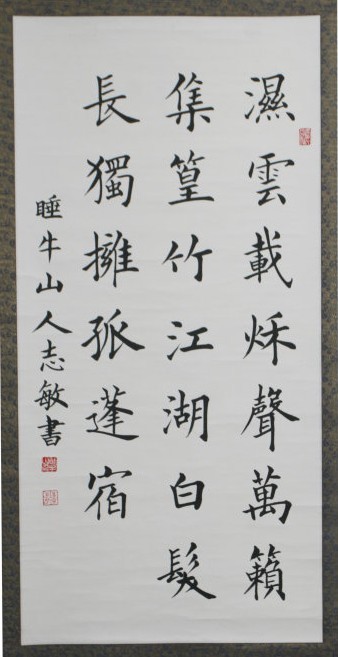 濕雲載秌聲萬籟
集篁竹江湖白髮
長獨擁孤蓬宿
睡牛山人志敏書